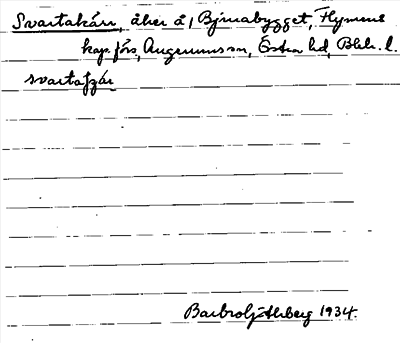 Svartakärr, åker å, Björnabygget, Flymens
kap. förs, Augerums sn, Östra hd, Blek. l.
svartaʃär
Barbro Ljtelberg 1934.